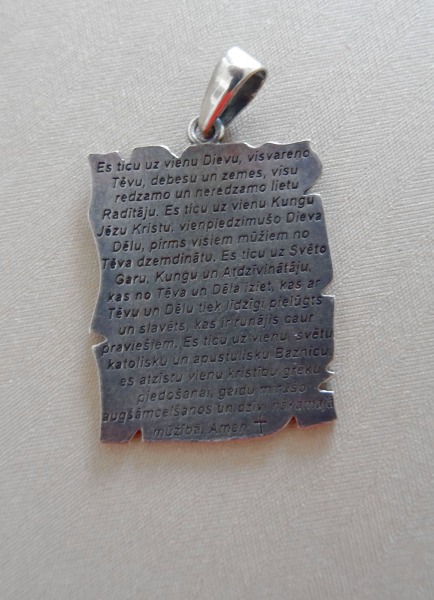 Es ticu uz vienu Dievu, visvareno
Tēvu, debesu un zemes, visu
redzamo un neredzamo lietu
Radītāju. Es ticu uz vienu Kungu
Jēzu Kristu, vienpiedzimušo Dieva
Dēlu, pirms visiem mūžiem no
Tēva dzemdinātu. Es ticu uz Svēto
Garu, Kungu un Atdzīvinātāju,
kas no Tēva un Dēla iziet, kas ar
Tēvu un Dēlu tiek līdzīgi pielūgts
un slavēts, kas ir runājis caur
praviešiem. Es ticu uz vienu svētu
katolisku un apustulisku Baznīcu,
es atzīstu vienu kristību grēku
piedošanai, gaidu mirušo
augšāmcelšanos un dzīvi nākamajā
mūžībā. Amen. †